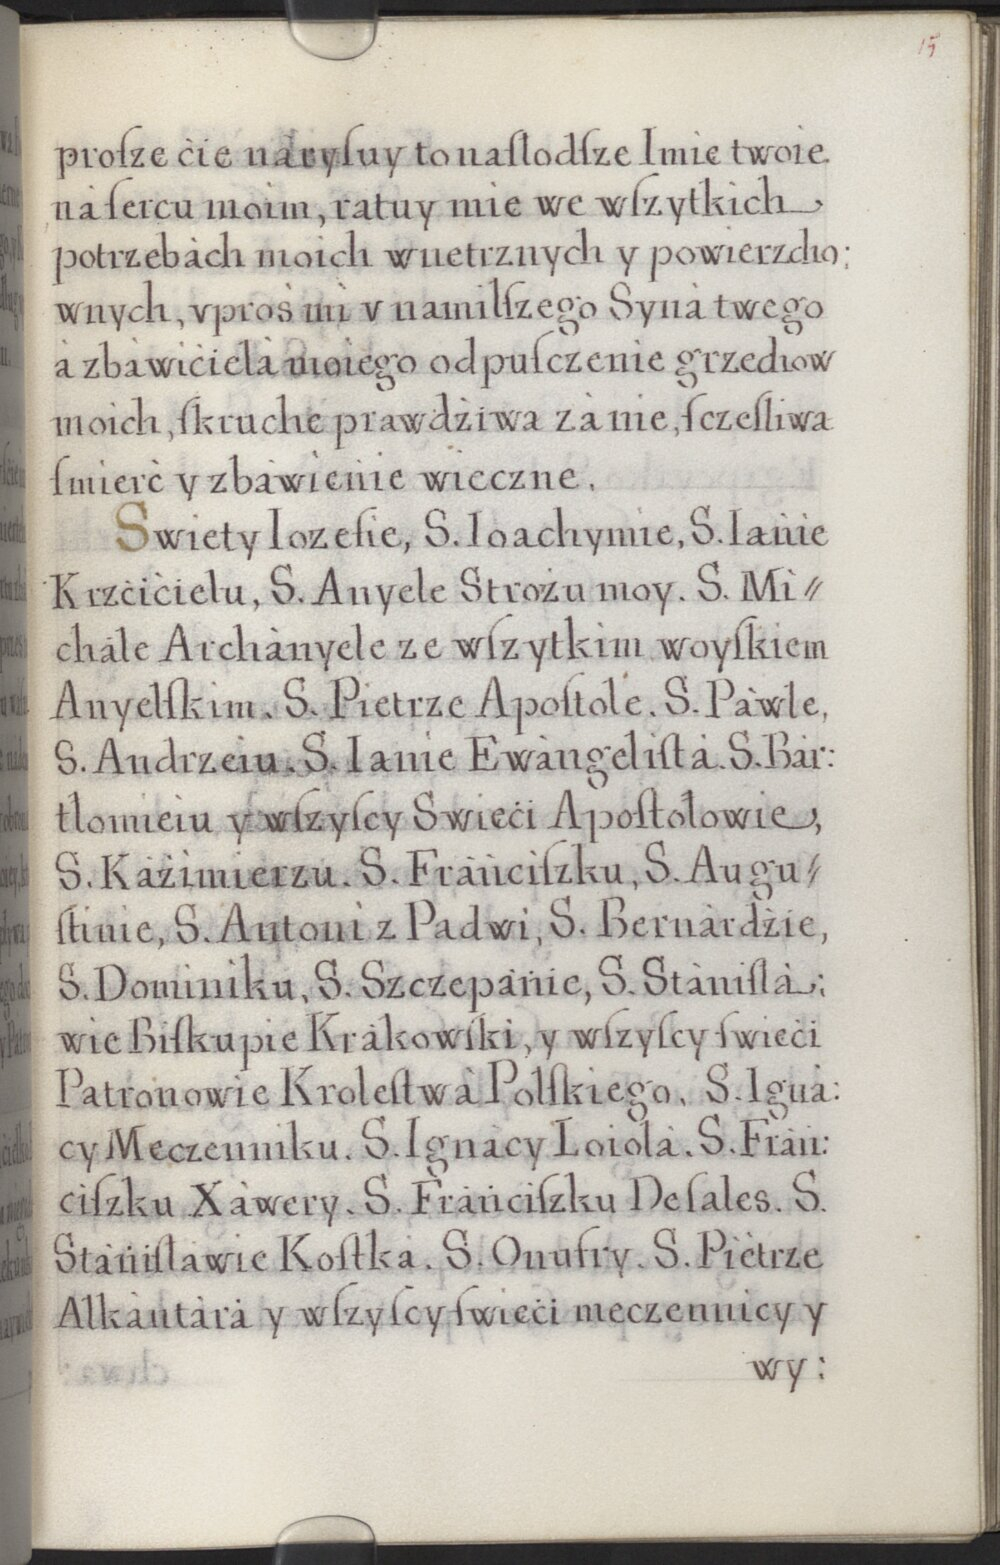 15
proſze ċie náryſuy to naſlodſze Imie twoie
ná ſercu moim, ratuy mie we wſzytkich
potrzebách moich wnetrznych y powierzcho:
wnych, vproś mi v namilſzego Syná twego
á zbáwiċielá moiego odpuſczenie grzechow
moich, ſkruche prawdźiwa zá nie, ſczeſliwa
ſmierċ y zbáwienie wieczne.
Swiety Iozefie, S. Ioachymie, S. Ianie
Krzċiċielu, S. Anyele Strożu moy. S. Mi//
chále Archányele ze wſzytkim woyſkiem
Anyelſkim. S. Pietrze Apoſtole. S. Páwle,
S. Andrzeiu. S. Ianie Ewángeliſtá. S. Bár:
tlomieiu y wſzyſcy Swieċi Apoſtołowie,
S. Káźimierzu. S. Fránciſzku, S. Augu//
ſtinie, S. Antoni z Padwi, S. Bernárdźie,
S. Dominiku, S. Szczepánie, S. Stániſlá:
wie Biſkupie Krákowſki, y wſzyſcy ſwieċi
Patronowie Kroleſtwá Polſkiego. S. Igná:
cy Meczenniku. S. Ignácy Loiolá. S. Frán:
ciſzku Xáwery. S. Fránciſzku De ſales. S.
Stániſlawie Koſtka. S. Onufry. S. Piètrze
Alkántárá y wſzyſcy ſwieċi meczennicy y
wy: